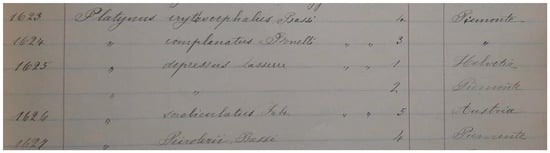 1623 Platynus erythrocephalus Bassi 4 Piemonte
1624 " complanatus Bonelli " " 3 "
1625 " depressus " " 1 Helvetia
" 2 Piemonte
1626 " scrobiculatus Fabr " " 5 Austria
1627 " Peirolerii Bassi 4 Piemonte